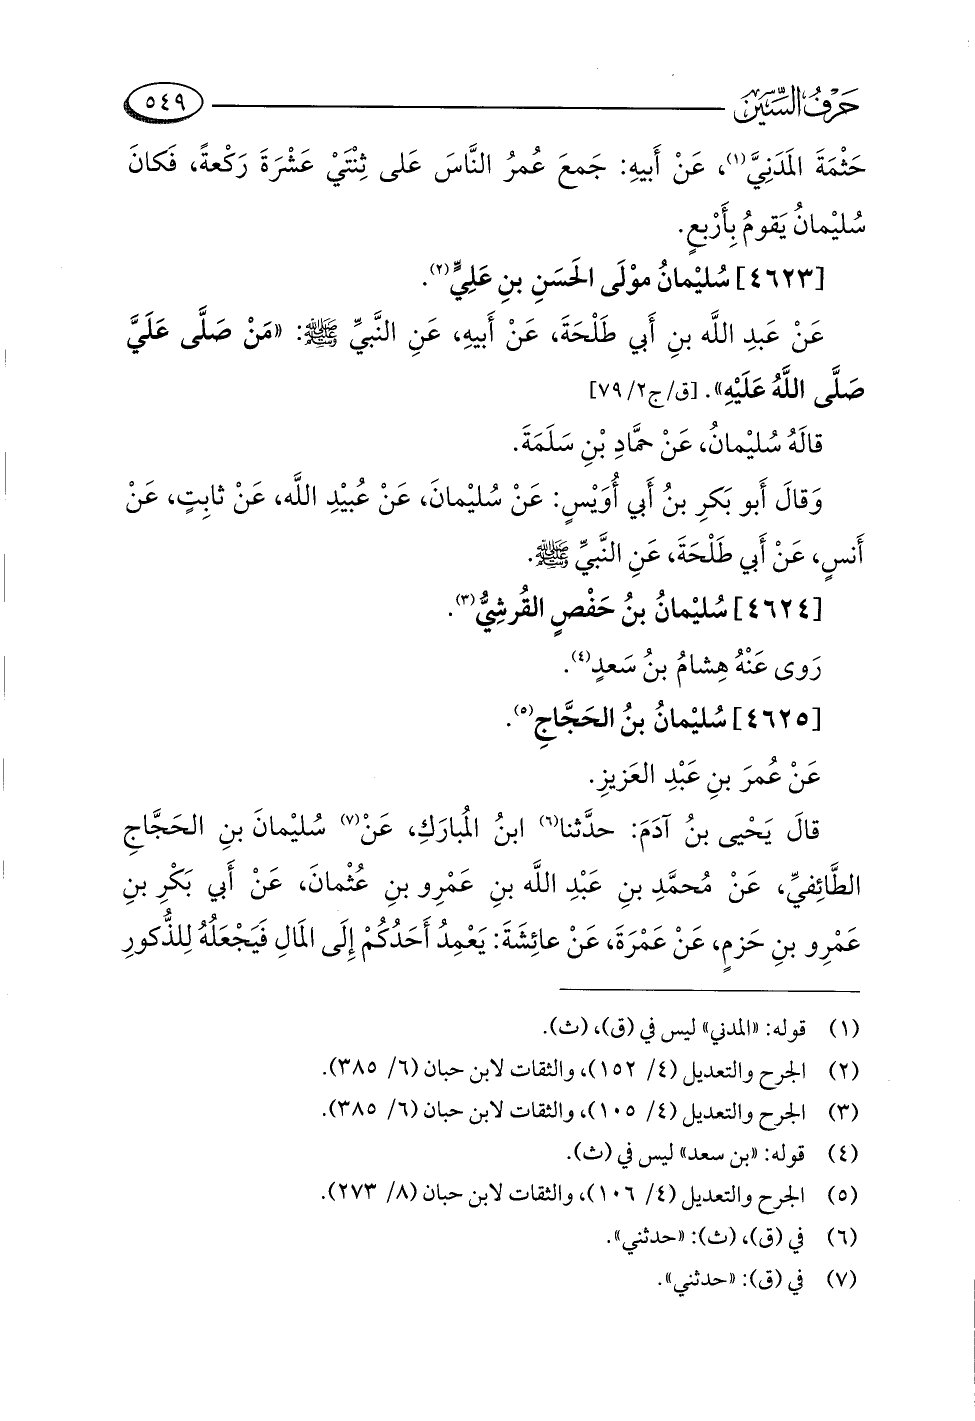 حَرْفُ السِّين ٥٤٩
حَثْمَةَ المَدَنِيَّ(١)، عَنْ أَبيهِ: جَمعَ عُمرُ النَّاسَ عَلى ثِنْتَيْ عَشْرَةَ رَكْعةً، فَكانَ
سُليْمانُ يَقومُ بِأَرْبعٍ.
[٤٦٢٣] سُليْمانُ موْلَى الحَسَنِ بنِ عَلِيٍّ(٢).
عَنْ عَبدِ اللَّه بنِ أَبي طَلْحَةَ، عَنْ أَبيهِ، عَنِ النَّبيِّ ﷺ: «مَنْ صَلَّى عَلَيَّ
صَلَّى اللَّهُ عَلَيْهِ». [ق/ج٢/ ٧٩]
قالَهُ سُليْمانُ، عَنْ حمَّادِ بْنِ سَلَمَةَ.
وَقالَ أَبو بَكرِ بنُ أَبي أُوَيْسٍ: عَنْ سُليْمانَ، عَنْ عُبيْدِ اللَّه، عَنْ ثابتٍ، عَنْ
أَنسٍ، عَنْ أَبي طَلْحَةَ، عَنِ النَّبيِّ ﷺ.
[٤٦٢٤] سُليْمانُ بنُ حَفْصٍ القُرشِيُّ(٣).
رَوى عَنْهُ هِشامُ بنُ سَعدٍ(٤).
[٤٦٢٥] سُليْمانُ بنُ الحَجَّاجِ(٥).
عَنْ عُمرَ بنِ عَبْدِ العَزيزِ.
قالَ يَحْيى بنُ آدَمَ: حدَّثنا(٦) ابنُ المُبارَكِ، عَنْ(٧) سُليْمانَ بنِ الحَجَّاجِ
الطَّائِفيِّ، عَنْ مُحمَّدِ بنِ عَبْدِ اللَّه بنِ عَمْرِو بنِ عُثْمانَ، عَنْ أَبي بَكْرِ بنِ
عَمْرِو بنِ حَزمٍ، عَنْ عَمْرَةَ، عَنْ عائِشَةَ: يَعْمِدُ أَحَدُكُمْ إِلَى المَالِ فَيَجْعَلُهُ لِلذُّكورِ
(١) قوله: «المدني» ليس في (ق)، (ث).
(٢) الجرح والتعديل (٤/ ١٥٢)، والثقات لابن حبان (٦/ ٣٨٥).
(٣) الجرح والتعديل (٤/ ١٠٥)، والثقات لابن حبان (٦/ ٣٨٥).
(٤) قوله: «بن سعد» ليس في (ث).
(٥) الجرح والتعديل (٤/ ١٠٦)، والثقات لابن حبان (٨/ ٢٧٣).
(٦) في (ق)، (ث): «حدثني».
(٧) في (ق): «حدثني».